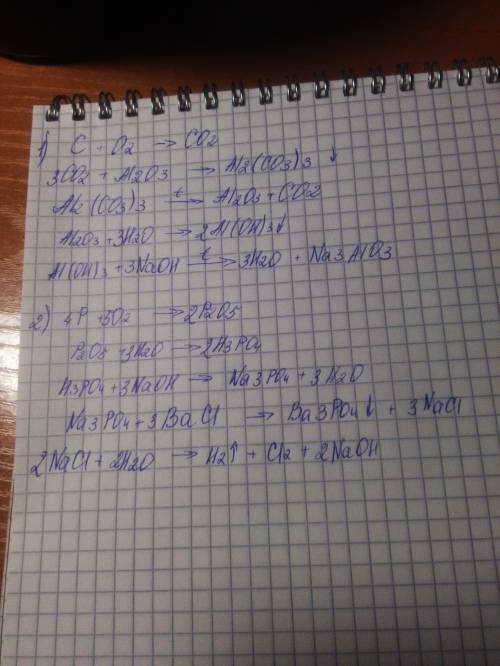 1) C + O2 → CO2
3CO2 + Al2O3 → Al2(CO3)3 ↓
Al2(CO3)3 t→ Al2O3 + CO2
Al2O3 + 3H2O → 2Al(OH)3↓
Al(OH)3 + 3NaOH t→ 3H2O + Na3AlO3
2) 4P + 5O2 → 2P2O5
P2O5 + 3H2O → 2H3PO4
H3PO4 + 3NaOH → Na3PO4 + 3H2O
Na3PO4 + 3BaCl → Ba3PO4↓ + 3NaCl
2NaCl + 2H2O → H2↑ + Cl2 + 2NaOH